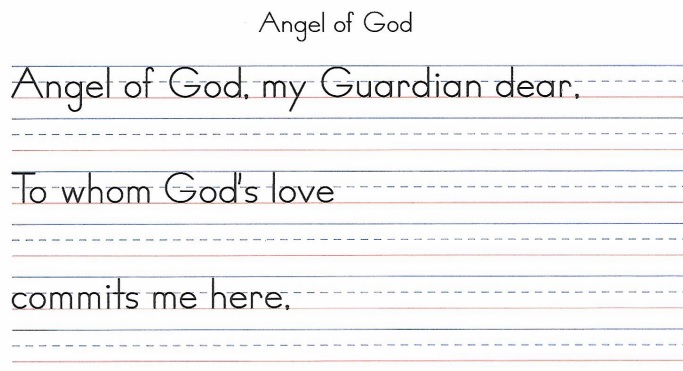 Angel of God
Angel of God, my Guardian dear,
To whom God's love
commits me here,